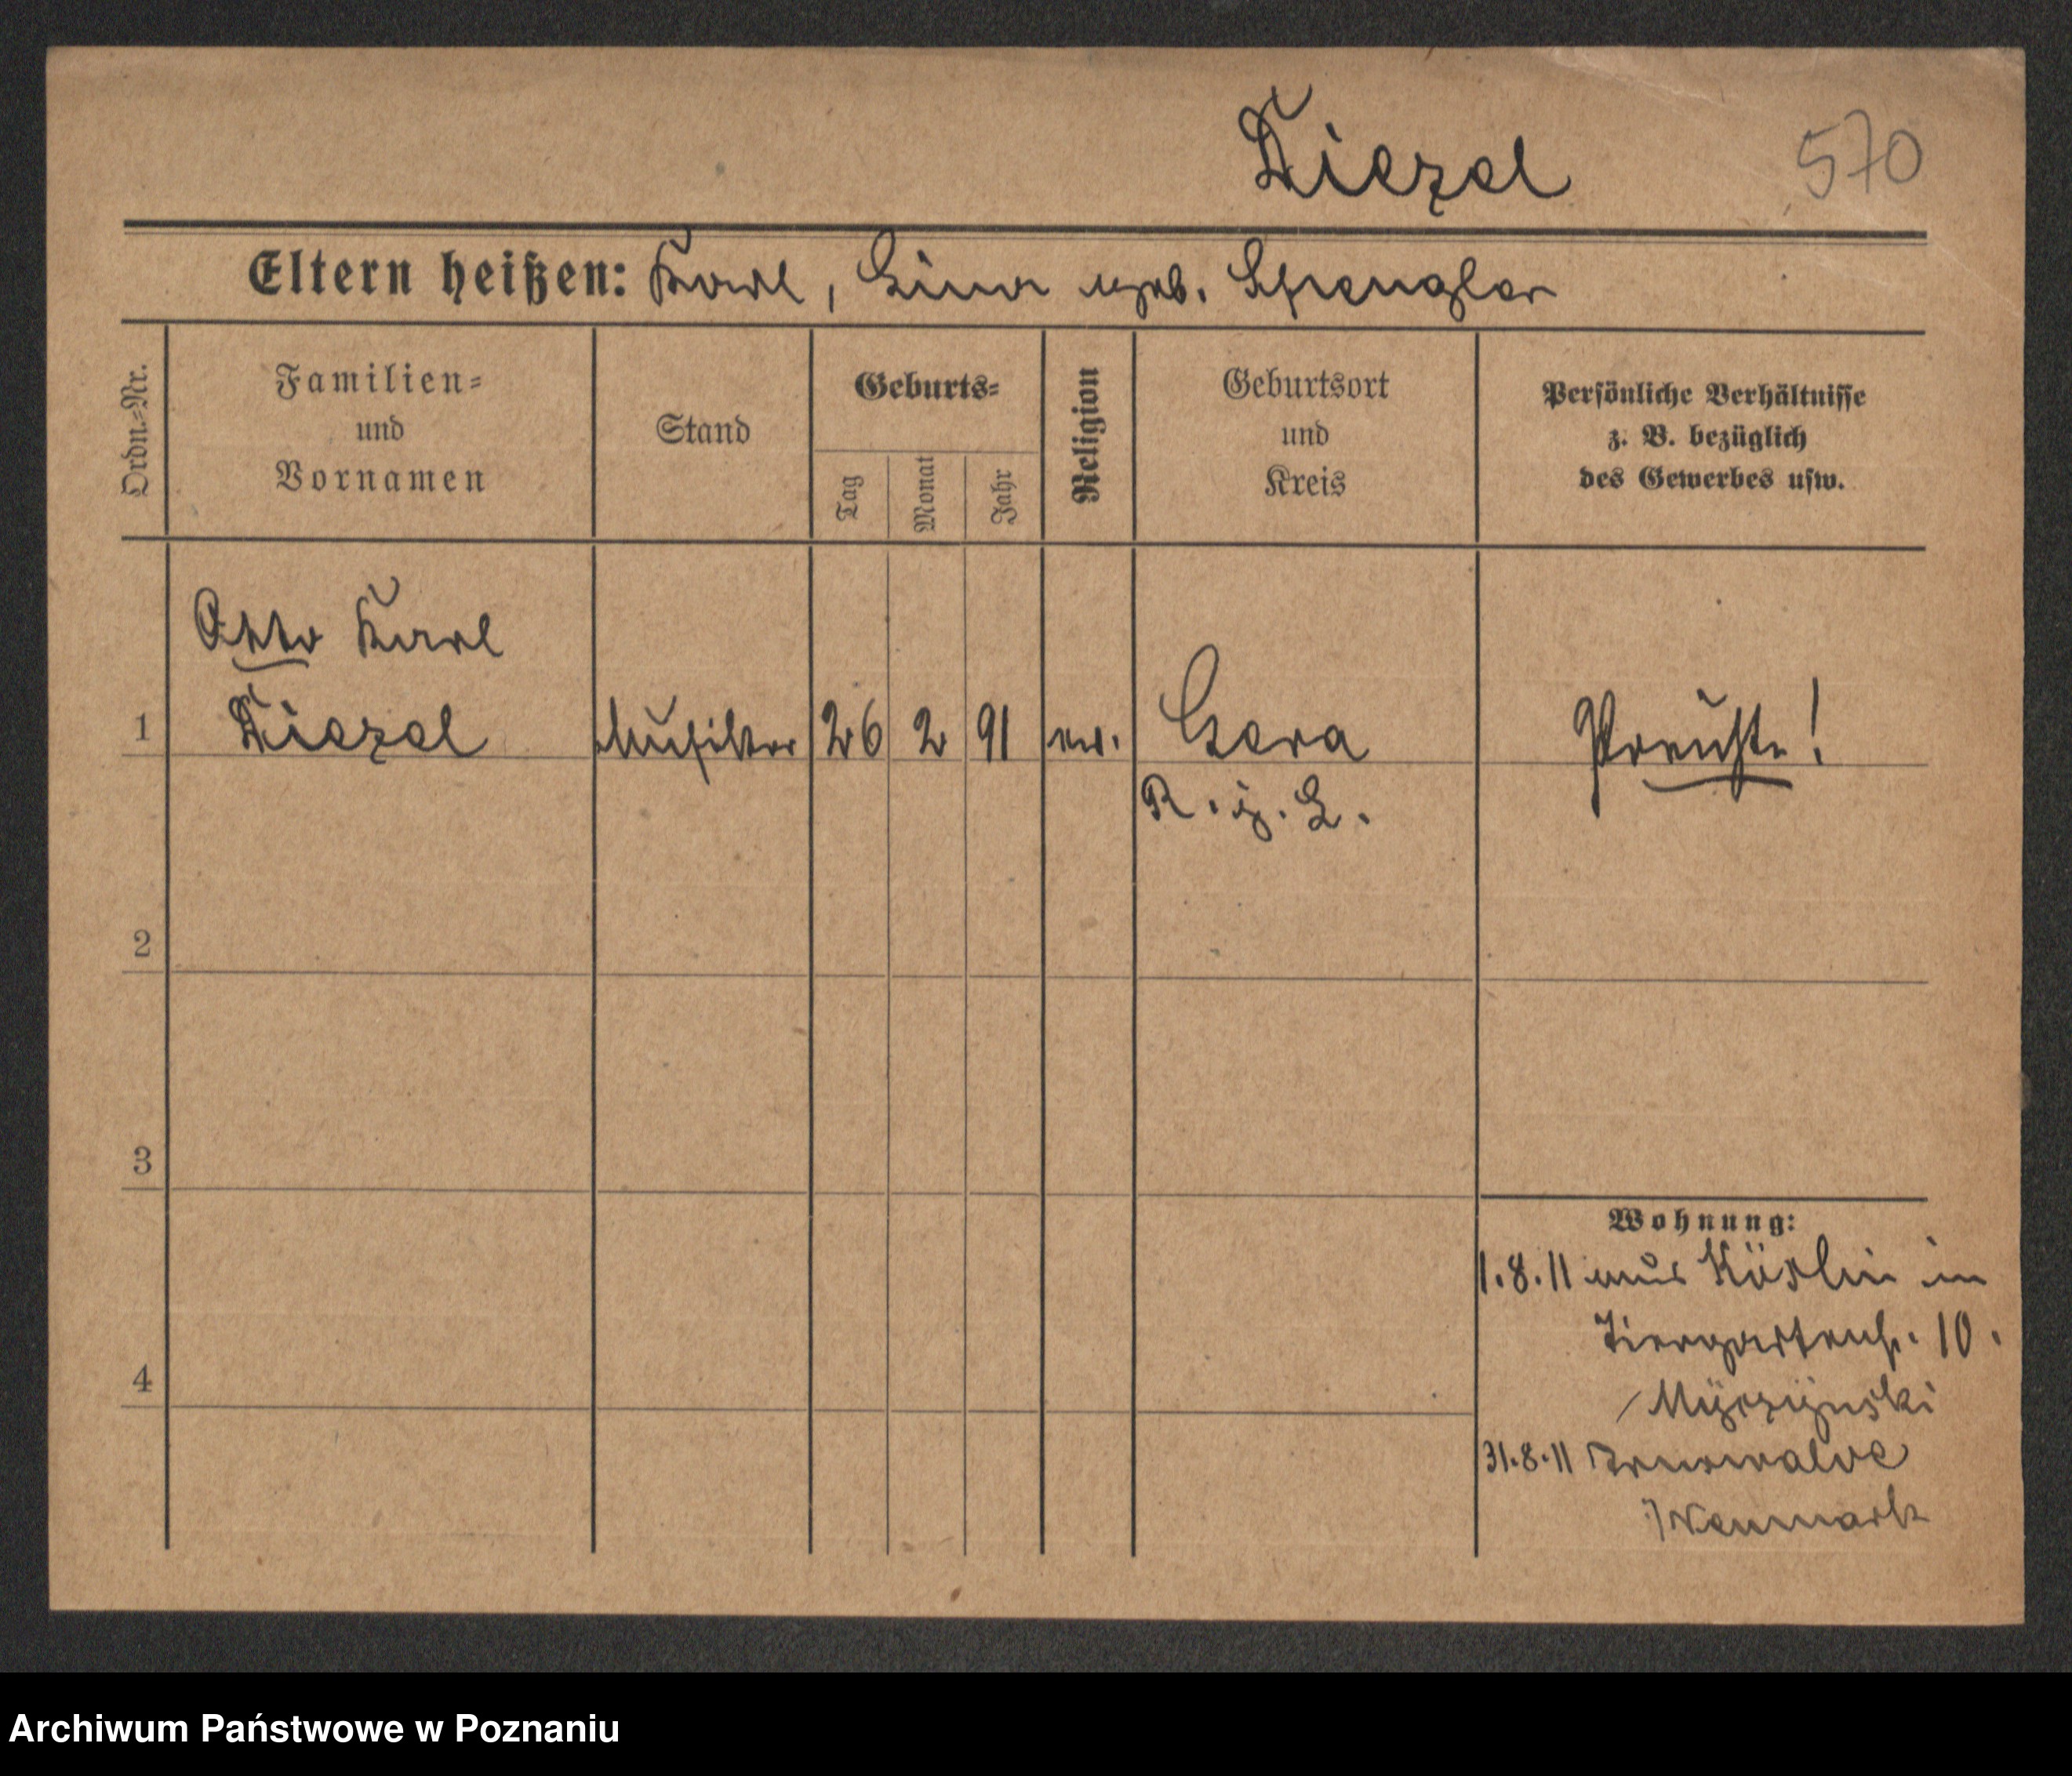 Diezel 570
Eltern heißen: Karl, Lina geb. Spengler
Ordn.=Nr.
Familien=
und
Vornamen
Stand
Geburts=
Tag
Monat
Jahr
Religion
Geburtsort
und
Kreis
Persönliche Verhältnisse
z. B. bezüglich
des Gewerbes usw.
Otto Karl
1 Diezel Musiker 26 2 91 ev. Gera
R. j. L.
2
3
4
Wohnung:
1.8.11 aus Köslin in
Tiergartenstr. 10.
/ Myrzynski
31.8.11 Arnswalde
i/Neumark
Archiwum Państwowe w Poznaniu